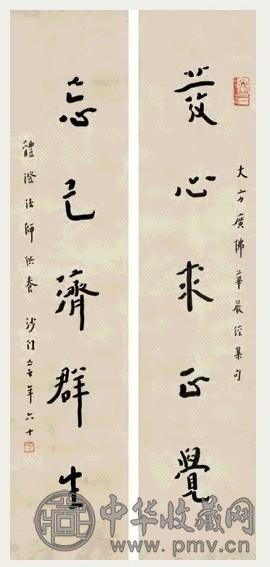 大方廣佛華嚴經集句
發心求正覺
忘己濟群生
體澄法師供養 沙門 年六十
中华收藏网
www.pmv.cn